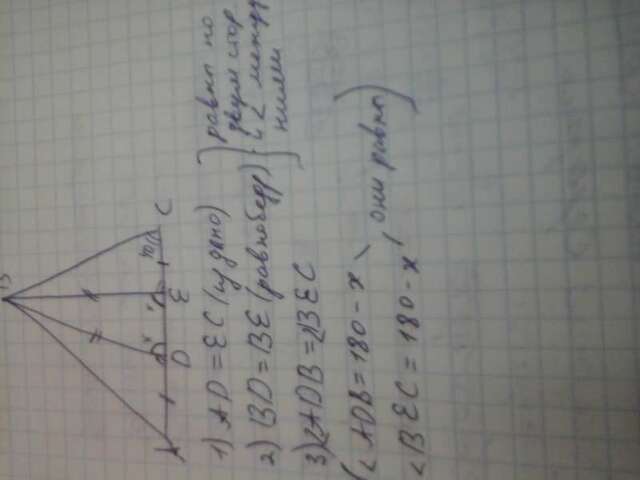 B
A D E C
1) AD = EC (из дано)
2) BD = BE (равнобедр)
3) ∠ADB = ∠BEC
равны по
двум стор
и ∠ между
ними
(∠ADB = 180 - x
∠BEC = 180 - x, они равны)